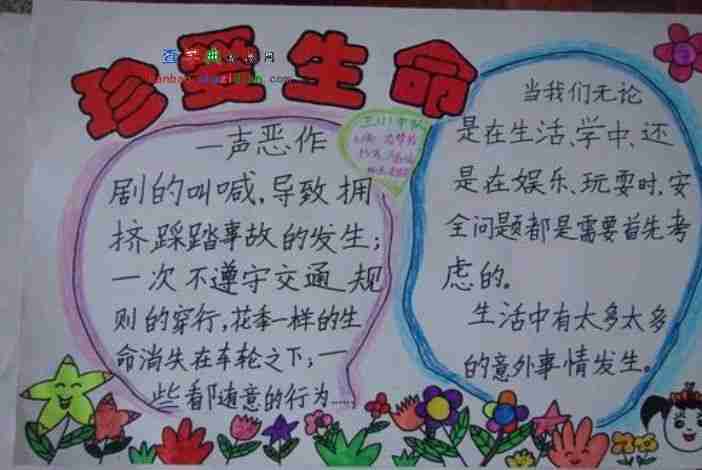 珍爱生命
一声恶作
剧的叫喊,导致拥
挤踩踏事故的发生;
一次不遵守交通规
则的穿行,花季一样的生
命消失在车轮之下;一
些看似随意的行为……
当我们无论
是在生活、学中、还
是在娱乐、玩耍时,安
全问题都是需要首先考
虑的。
生活中有太多太多
的意外事情发生。